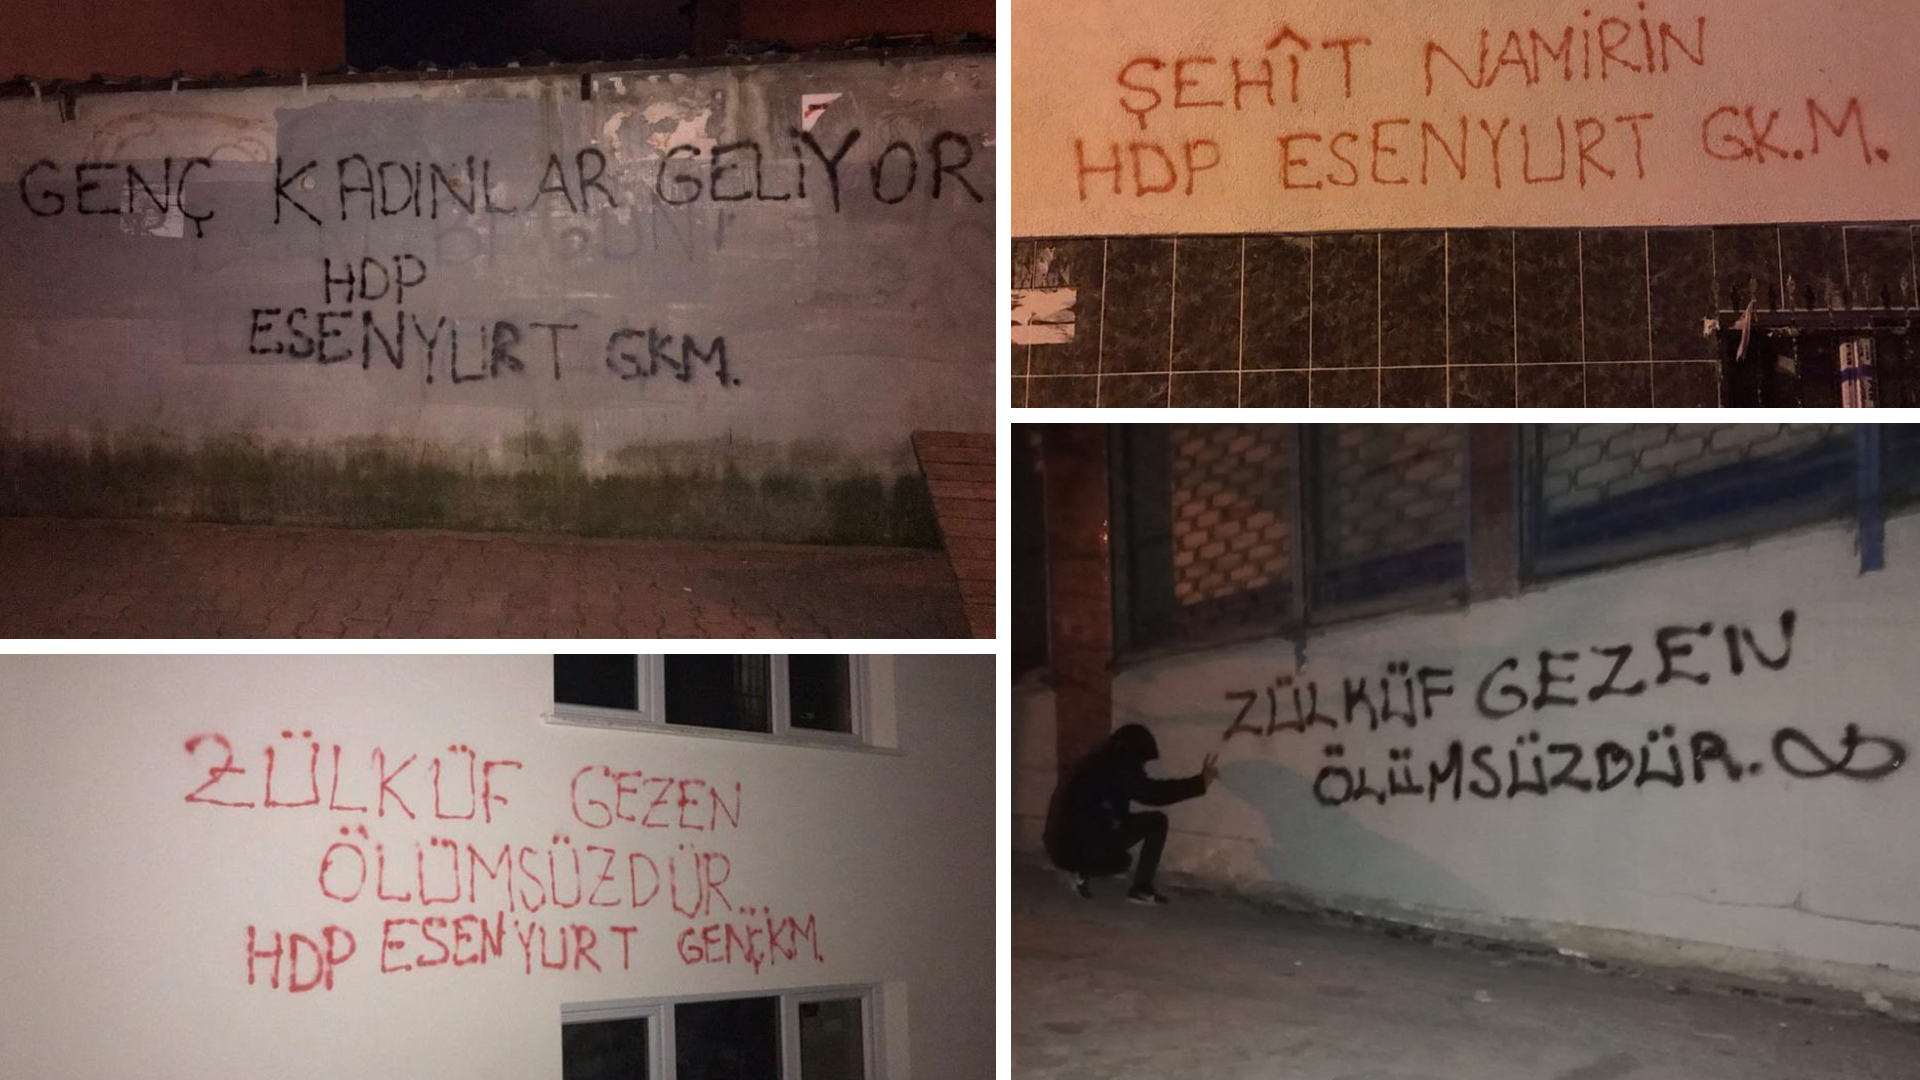 GENÇ KADINLAR GELİYOR.
HDP
ESENYURT G.K.M.
ŞEHÎT NAMİRİN
HDP ESENYURT G.K.M.
ZÜLKÜF GEZEN
ÖLÜMSÜZDÜR...
HDP ESENYURT GENÇ K.M.
ZÜLKÜF GEZEN
ÖLÜMSÜZDÜR.